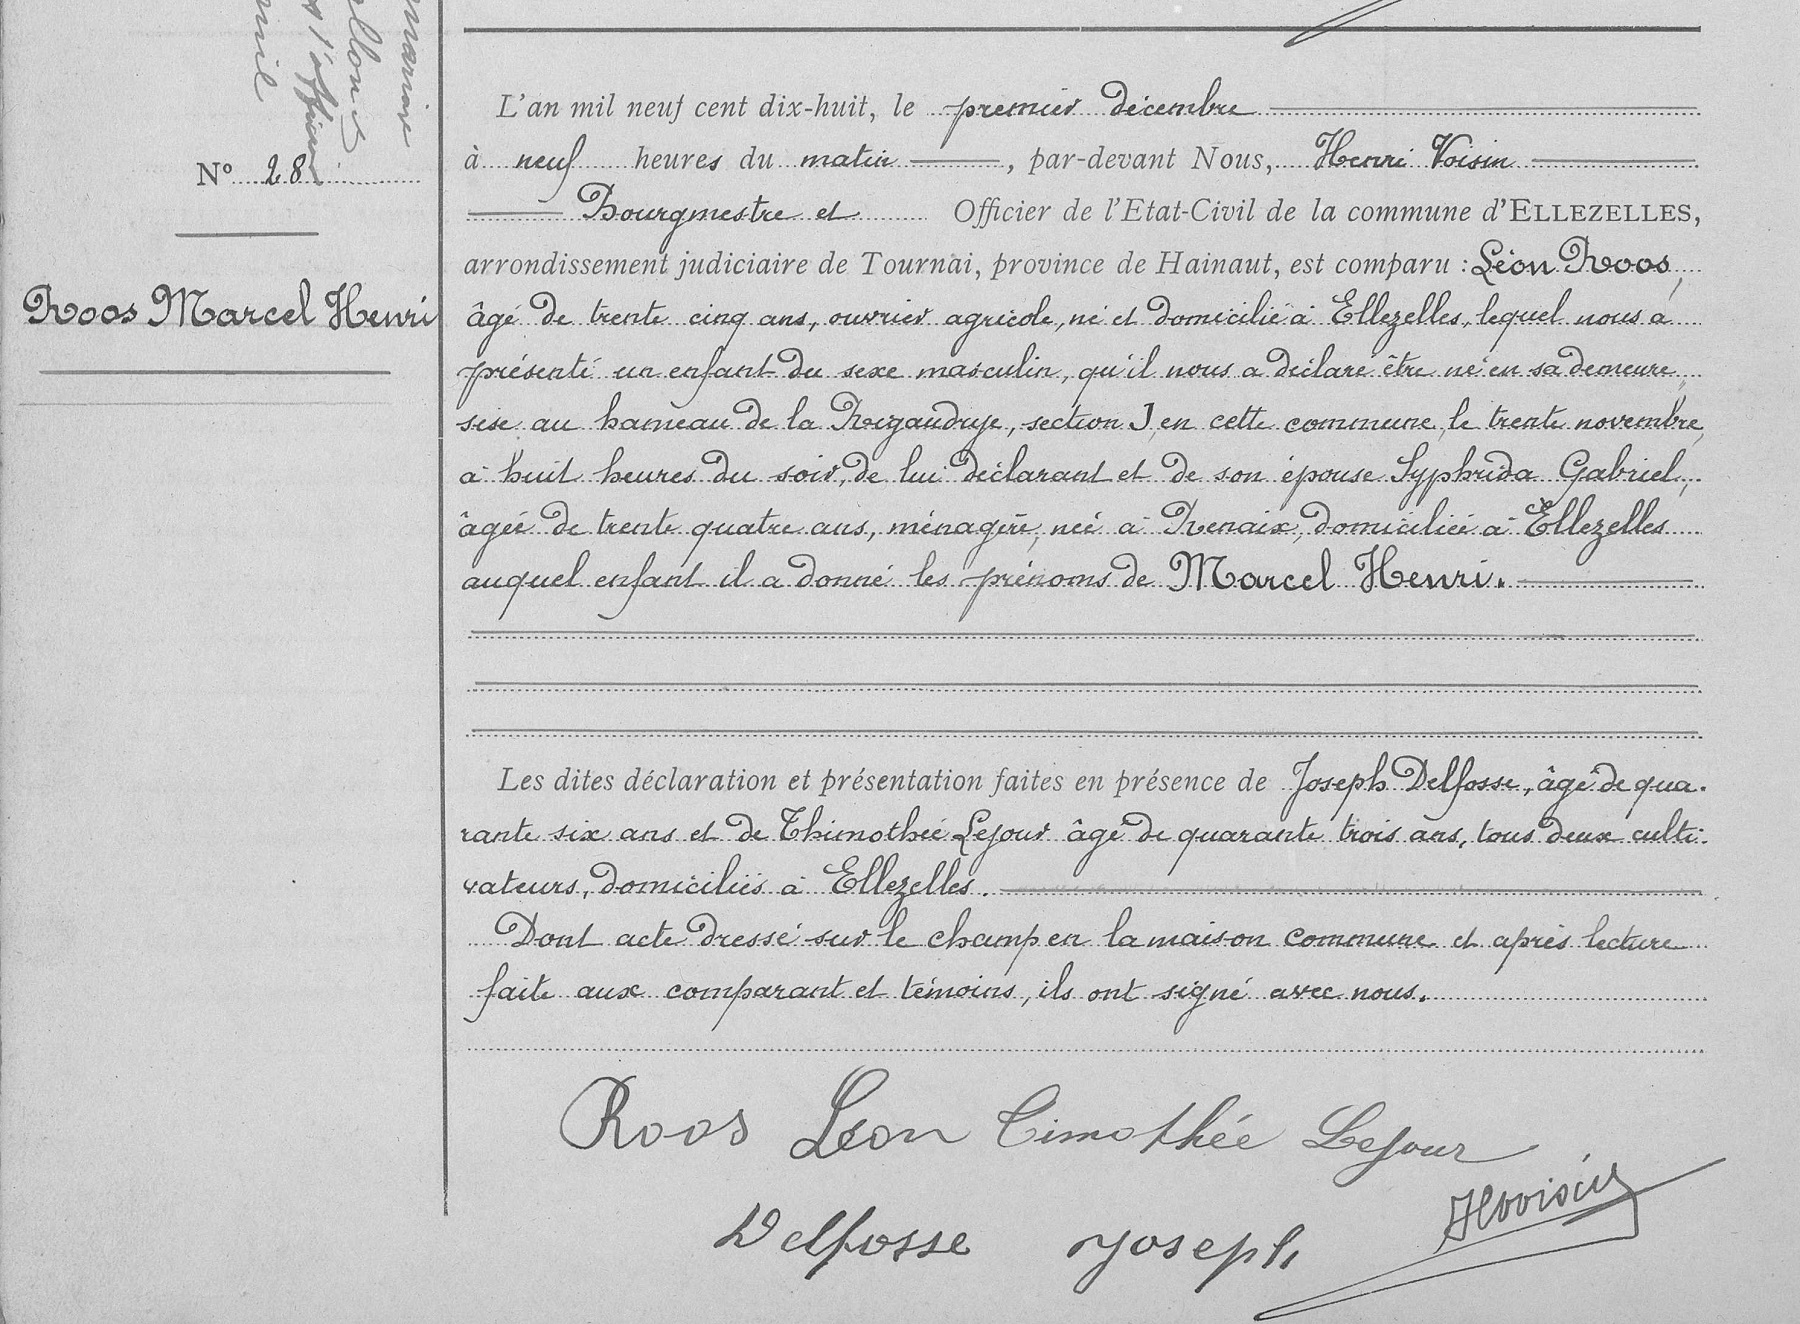 N° 28
Roos Marcel Henri
L'an mil neuf cent dix-huit, le premier décembre
à neuf heures du matin, par-devant Nous, Henri Voisin
Bourgmestre et Officier de l'Etat-Civil de la commune d'ELLEZELLES,
arrondissement judiciaire de Tournai, province de Hainaut, est comparu : Léon Roos,
âgé de trente cinq ans, ouvrier agricole, né et domicilié à Ellezelles, lequel nous a
présenté un enfant du sexe masculin, qu'il nous a déclaré être né en sa demeure,
sise au hameau de la Rigaudrye, section J, en cette commune, le trente novembre,
à huit heures du soir, de lui déclarant et de son épouse Syphrida Gabriel,
âgée de trente quatre ans, ménagère, née à Renaix, domiciliée à Ellezelles
auquel enfant il a donné les prénoms de Marcel Henri.
Les dites déclaration et présentation faites en présence de Joseph Delfosse, âgé de qua-
rante six ans et de Thimothée Lejour âgé de quarante trois ans, tous deux culti-
vateurs, domiciliés à Ellezelles.
Dont acte dressé sur le champ en la maison commune et après lecture
faite aux comparant et témoins, ils ont signé avec nous.
Roos Léon Timothée Lejour
HVoisin
Delfosse Joseph